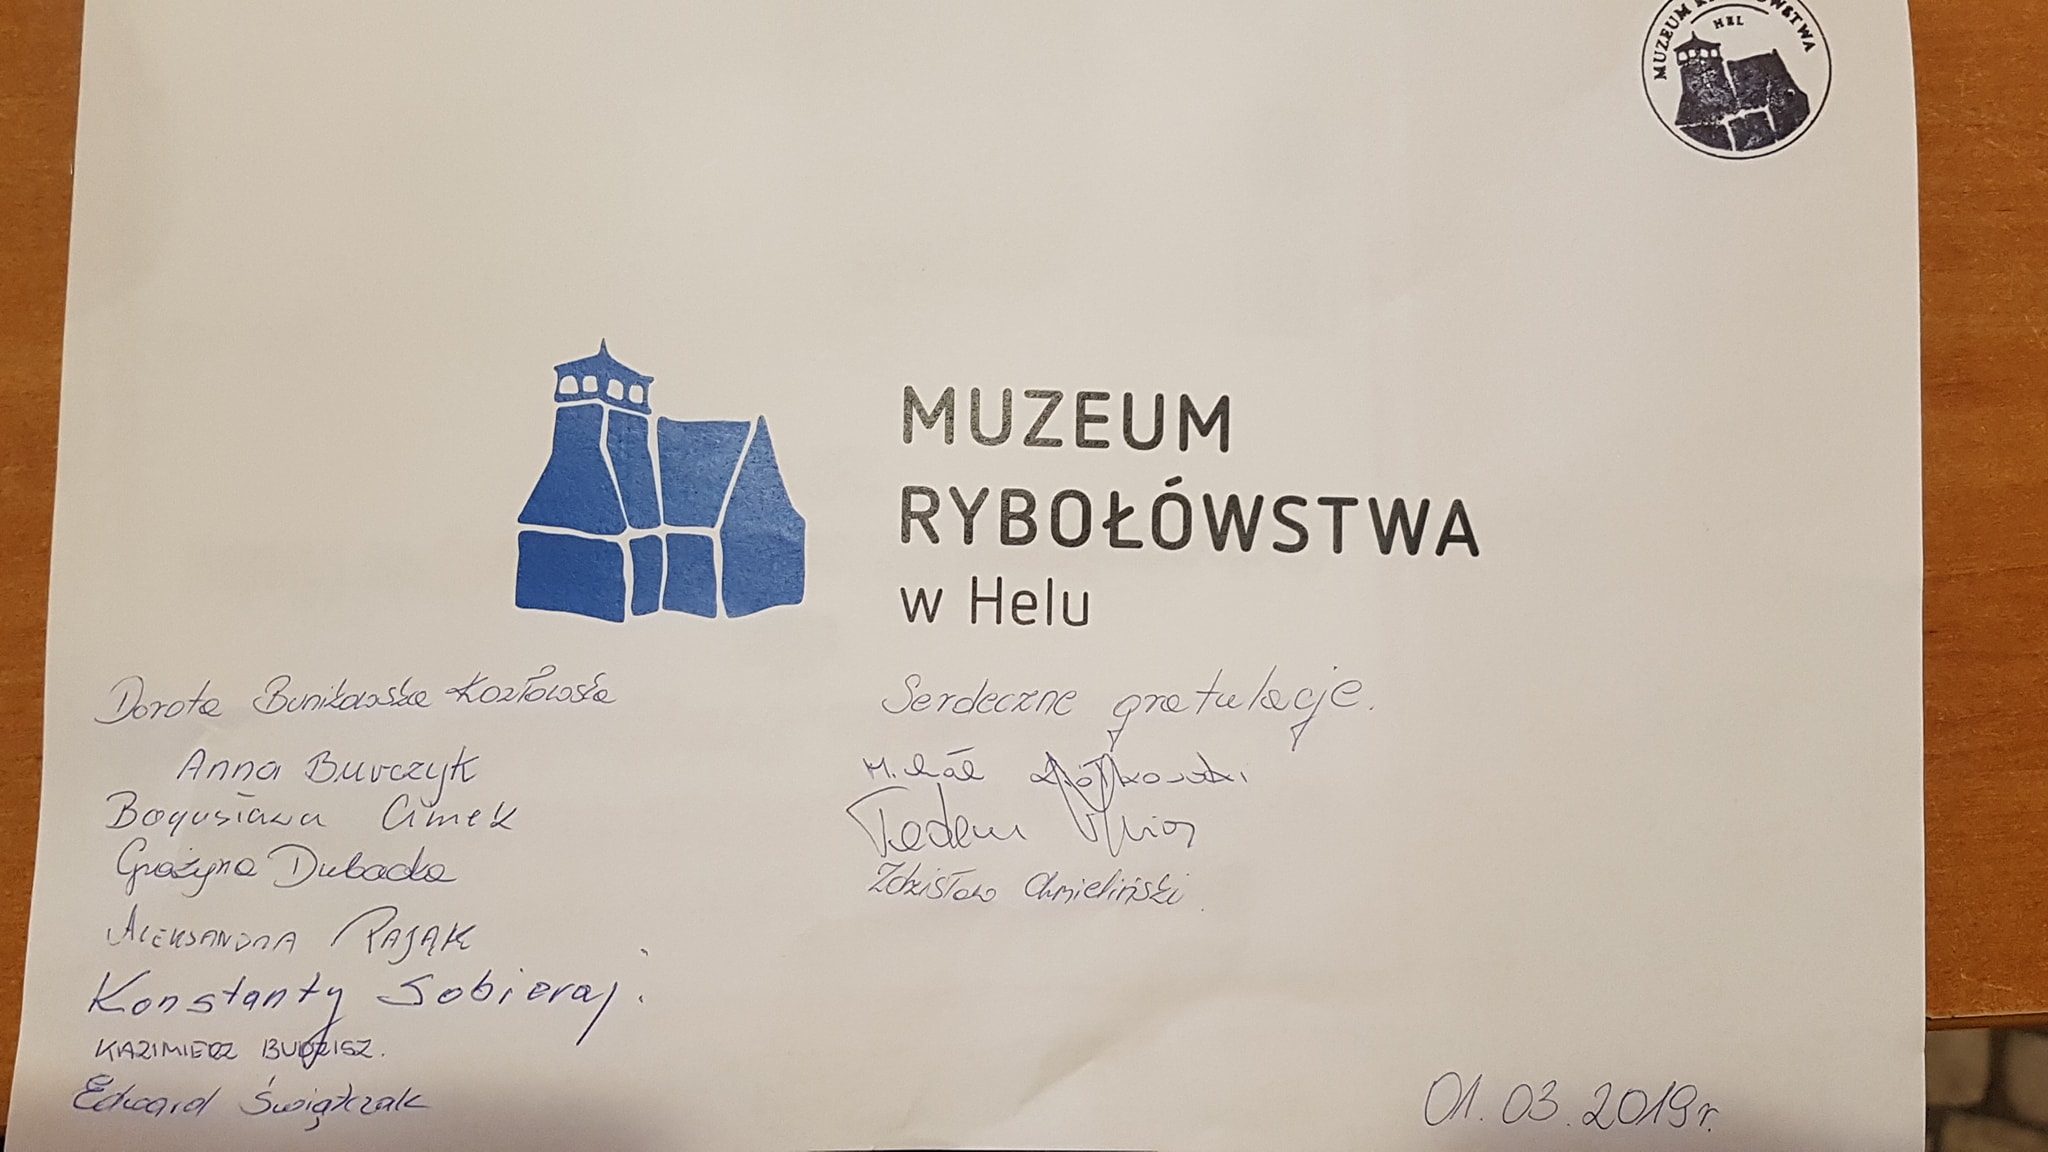 MUZEUM RYBOŁÓWSTWA
HEL
MUZEUM
RYBOŁÓWSTWA
w Helu
Dorota Bunikowska Kozłowska
Anna Burczyk
Bogusława Cimek
Grażyna Dubacka
ALEKSANDRA PAJĄK
Konstanty Sobieraj.
KAZIMIERZ BUDZISZ.
Edward Świątczak
Serdeczne gratulacje.
Zdzisław Chmieliński
01.03.2019r.